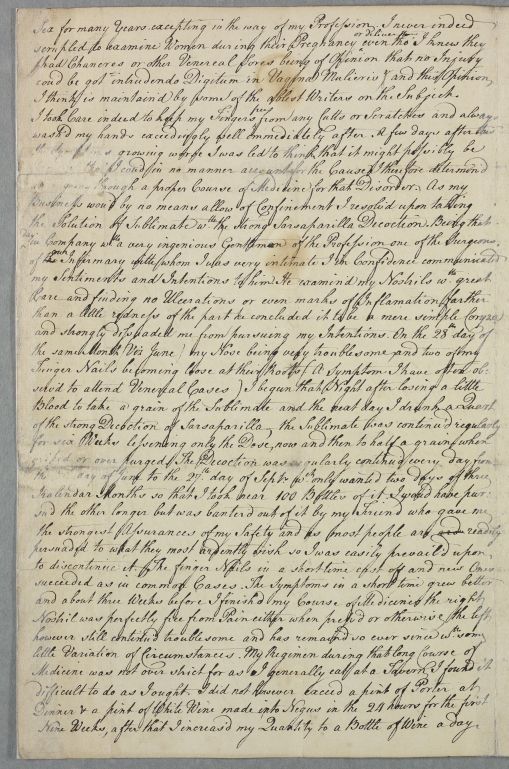 Sex for many Years excepting in the way of my Profession. I never indeed
scrupled to examine Women during their Pregnancy or deliver even tho I knew they
had Chancres or other Venereal Sores being of Opinion that no Injury
could be got intrudendo Digitum in Vaginam Mulieris & and this Opinion
I think is maintain'd by some of the ablest Writers on the Subject.
I took Care indeed to keep my Fingers free from any Cutts or Scratches and always
wash'd my hands exceedingly well immediately after. A few days after
growing worse I was led to think that it might possibly be
I cou'd in no manner account for the Cause I therefore determind
through a proper Course of Medicine for that Disorder. As my
Business wou'd by no means allow of Confinement I resolv'd upon taking
the Solution of Sublimate wth the strong Sarsaparilla Decoction. Being that
Day in Company wth a very ingenious Gentleman of the Profession one of the Surgeons
of our Infirmary with whom I was very intimate I in Confidence communicated
my Sentiments and Intentions to him. He examin'd my Nostrils wth great
Care and finding no Ulcerations or even marks of Inflamation farther
than a little redness of the part he concluded it to be a mere simple Coryza
and strongly dissuaded me from pursuing my Intentions. On the 28th day of
the same Month Viz June / my Nose being very troublesome and two of my
Finger Nails becoming loose at their Roots / A Symptom I have often ob-
serv'd to attend Venereal Cases / I begun that Night after losing a little
Blood to take a grain of the Sublimate and the next day I drank a Quart
of the strong Decoction of Sarsaparilla, the Sublimate was continu'd regularly
for six Weeks lessening only the Dose now and then to half a grain when
or over purged. The Decoction was regularly continu'd every day from
the day of June to the 27th day of Septr wch only wanted two days of three
Kalendar Months so that I took near 100 Bottles of it. I wou'd have pur-
su'd the other longer but was banter'd out of it by my Friend who gave me
the strongest Assurances of my Safety and as most people are readily
persuaded to what they most ardently wish so I was easily prevail'd upon
to discontinue it. The Finger Nails in a short time cast off and new Ones
succeeded as in common Cases. The Symptoms in a short time grew better
and about three Weeks before I finish'd my Course of Medicine the right
Nostril was perfectly free from Pain either when press'd or otherwise, the left
however still continu'd troublesome and has remain'd so ever since wth some
little Variation of Circumstances. My Regimen during that long Course of
Medicine was not over strict for as I generally eat at a Tavern I found it
difficult to do as I ought. I did not however exceed a pint of Porter at
Dinner & a pint of White Wine made into Negus in the 24 hours for the first
Nine Weeks, after that I increas'd my Quantity to a Bottle of Wine a day